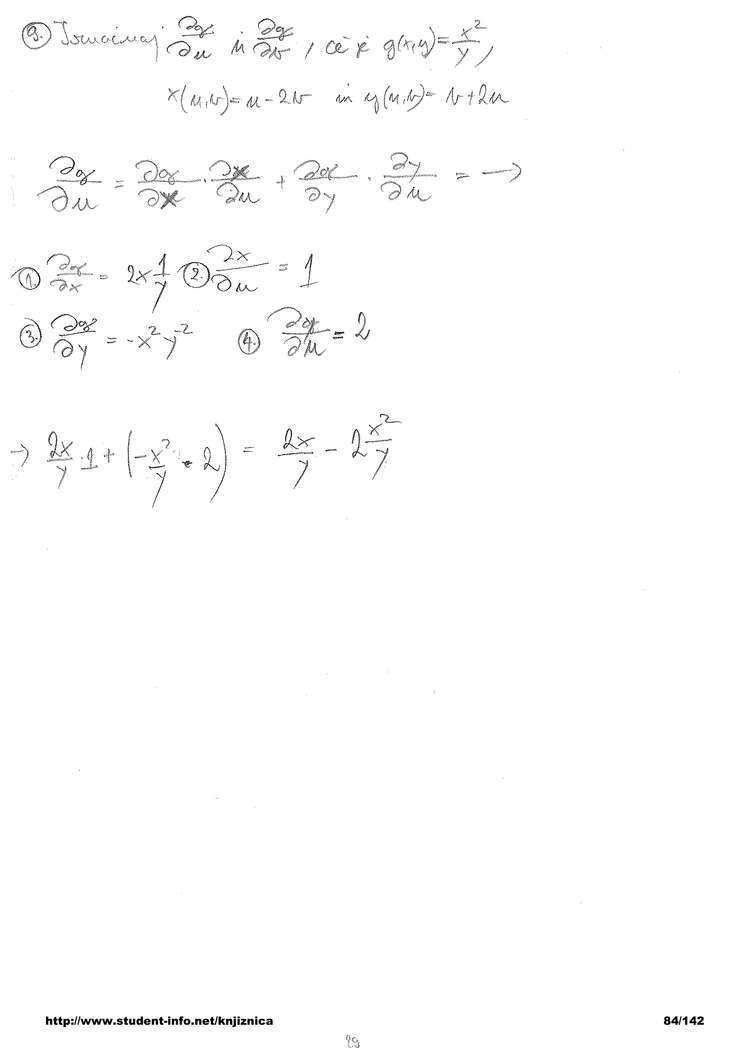 9. Izračunaj ∂g/∂u in ∂g/∂v, če je g(x,y)= x²/y,
x(u,v)=u-2v in y(u,v)= v+2u
∂g/∂u = ∂g/∂x · ∂x/∂u + ∂g/∂y · ∂y/∂u = →
1. ∂g/∂x = 2x 1/y 2. ∂x/∂u = 1
3. ∂g/∂y = -x² y⁻² 4. ∂y/∂u = 2
→ 2x/y · 1 + (-x²/y · 2) = 2x/y - 2 x²/y
http://www.student-info.net/knjiznica 84/142
29